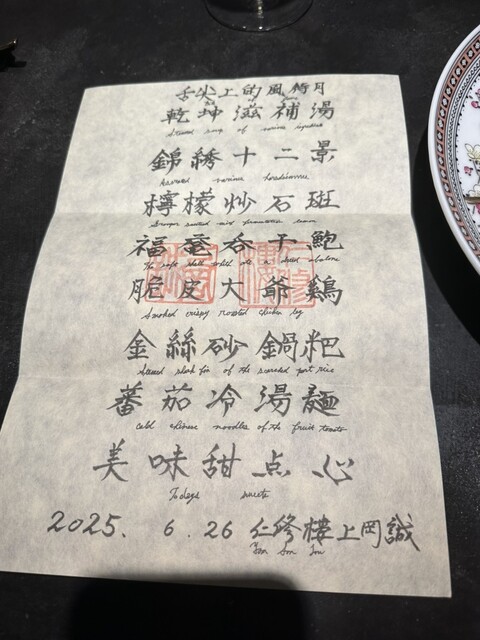 舌尖上的風情月
乾坤滋補湯
Steamed soup of various ingredients
錦綉十二景
Assorted various horsd'oeuvre
檸檬炒石斑
福竈呑干鮑
脆皮大爺鷄
Smoked crispy roasted chicken leg
金絲砂鍋粑
Stewed shark fin of the scorched pot rice
蕃茄冷湯麵
cold chinese noodles of the fruit tomato
美味甜点心
Todays sweets
2025. 6. 26 仁修樓上岡誠